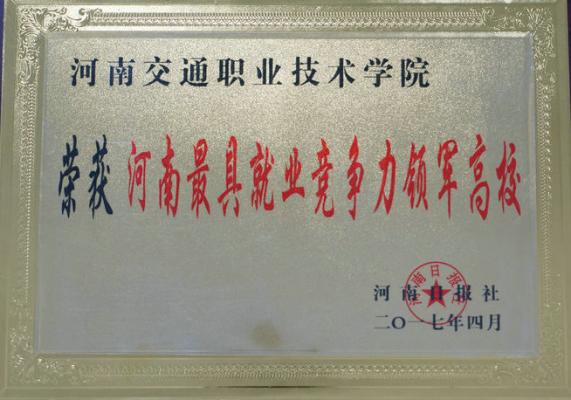 河南交通职业技术学院
荣获 河南最具就业竞争力领军高校
河南日报社
河南日报社
二〇一七年四月